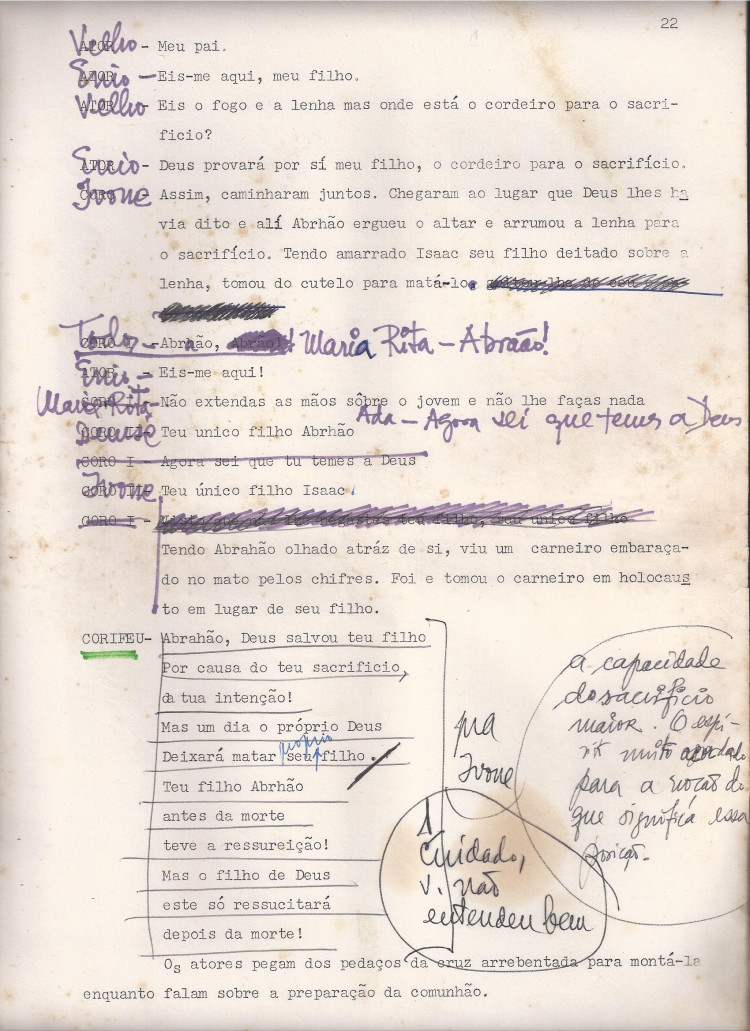 22
Velho ATOR - Meu pai.
Enio ATOR - Eis-me aqui, meu filho.
Velho ATOR - Eis o fogo e a lenha mas onde está o cordeiro para o sacri-
ficio?
Enio ATOR - Deus provará por sí meu filho, o cordeiro para o sacrifício.
Ivone CORO - Assim, caminharam juntos. Chegaram ao lugar que Deus lhes ha
via dito e alí Abrhão ergueu o altar e arrumou a lenha para
o sacrifício. Tendo amarrado Isaac seu filho deitado sobre a
lenha, tomou do cutelo para matá-lo.
Todos CORO I - Abrahão, Abrão! Maria Rita - Abraão!
Enio ATOR - Eis-me aqui!
Maria Rita - Não extendas as mãos sôbre o jovem e não lhe faças nada
Ada - Agora sei que temes a Deus
Denise Teu unico filho Abrhão
CORO I - Agora sei que tu temes a Deus
Ivone CORO Teu único filho Isaac.
CORO I - teu filho, seu unico filho
Tendo Abrahão olhado atráz de si, viu um carneiro embaraça-
do no mato pelos chifres. Foi e tomou o carneiro em holocaus
to em lugar de seu filho.
CORIFEU- Abrahão, Deus salvou teu filho
Por causa do teu sacrificio,
da tua intenção!
Mas um dia o próprio Deus
Deixará matar seu próprio filho.
Teu filho Abrhão
antes da morte
teve a ressureição!
Mas o filho de Deus
este só ressucitará
depois da morte!
pra
Ivone
a capacidade
do sacrifício
maior. O espí-
rit muito acordado
para a
que significa essa
posição.
Cuidado,
v. não
entendeu bem
Os atores pegam dos pedaços da cruz arrebentada para montá-la
enquanto falam sobre a preparação da comunhão.